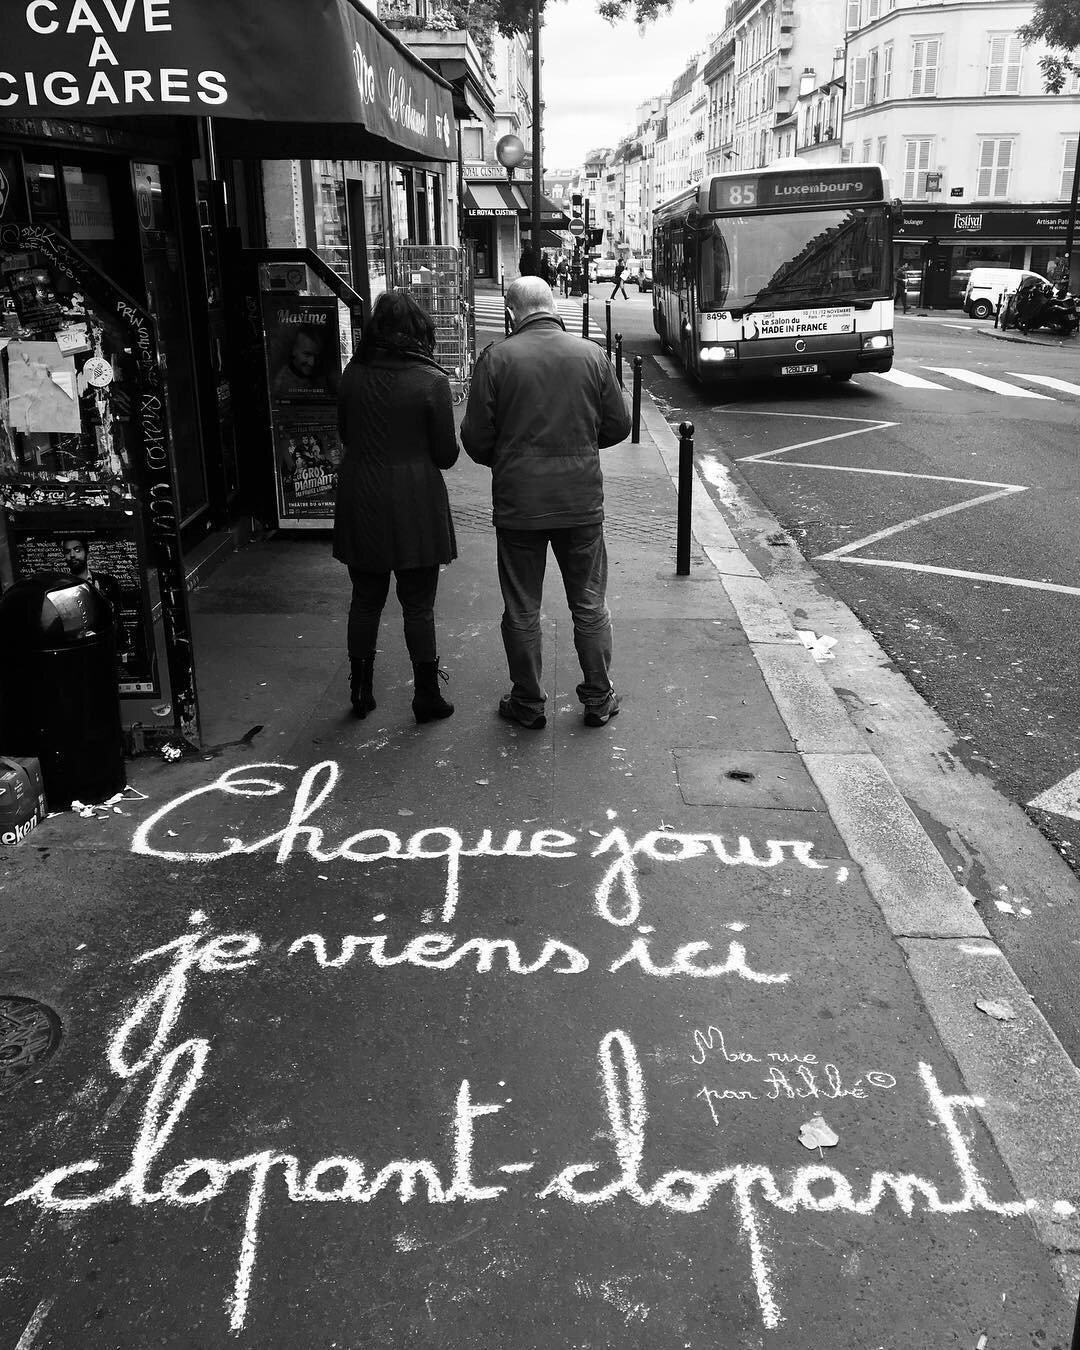 CAVE
A
CIGARES
ROYAL CUSTINE
LE ROYAL CUSTINE
85 Luxembourg
8496
Le salon du
MADE IN FRANCE
10/11/12 NOVEMBRE
Festival
Artisan
Maxime
GROS
DIAMANT
eken
Chaque jour,
je viens ici
clopant-clopant...
Ma rue
par Achbé ©